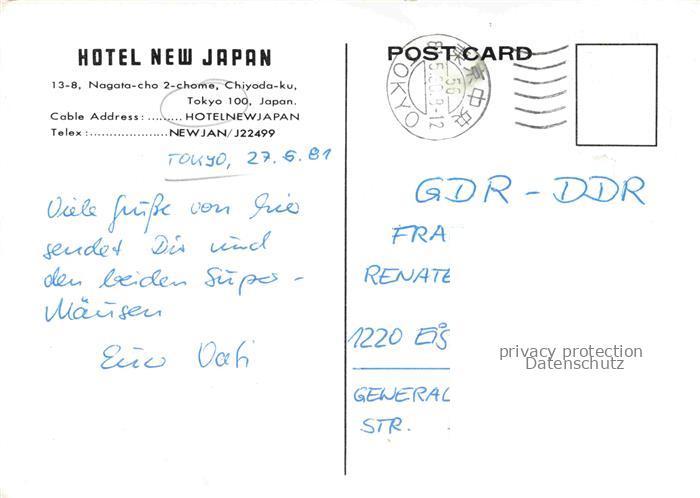 HOTEL NEW JAPAN
13-8, Nagata-cho 2-chome, Chiyoda-ku,
Tokyo 100, Japan.
Cable Address: ......... HOTELNEWJAPAN
Telex: ..................... NEWJAN/J22499
TOKYO, 27.6.81
Viele Grüße von hier
sendet Dir und
den beiden Super-
Mäusen
Euer Vati
POST CARD
東京中央
56
TOKYO
GDR - DDR
FRA
RENATE
1220 EIS
GENERAL
STR.
privacy protection
Datenschutz